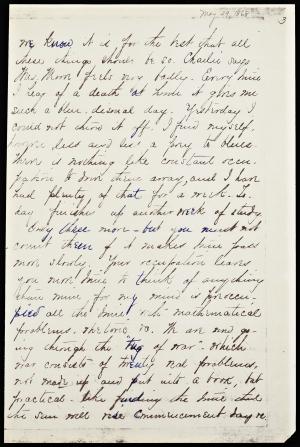 May 29, 1868
3
we know it is for the best that all
these things should be so. Charlie says
Mrs. Moon feels very badly. Every time
I hear of a death at home it gives me
such a blue, dismal day. Yesterday I
could not throw it off. I find myself,
less and less a prey to blues.
There is nothing like constant occu-
pation to drive them away, and I have
had plenty of that for a week. To-
day finishes up another week of study.
Only three more - but you must not
count them if it makes time pass
more slowly. Your occupation leaves
you more time to think of anything
than mine for my mind is preoccu-
pied all the time with mathematical
problems, rhetoric &c. We are now go-
ing through the "tug of war" - which
war consists of twenty real problems,
not made up and put into a book, but
practical - like finding the time that
the sun will rise commencement day &c